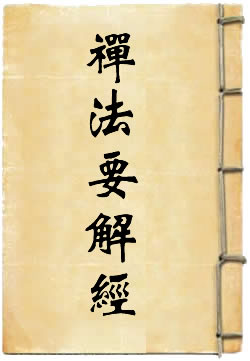 禪法要解經